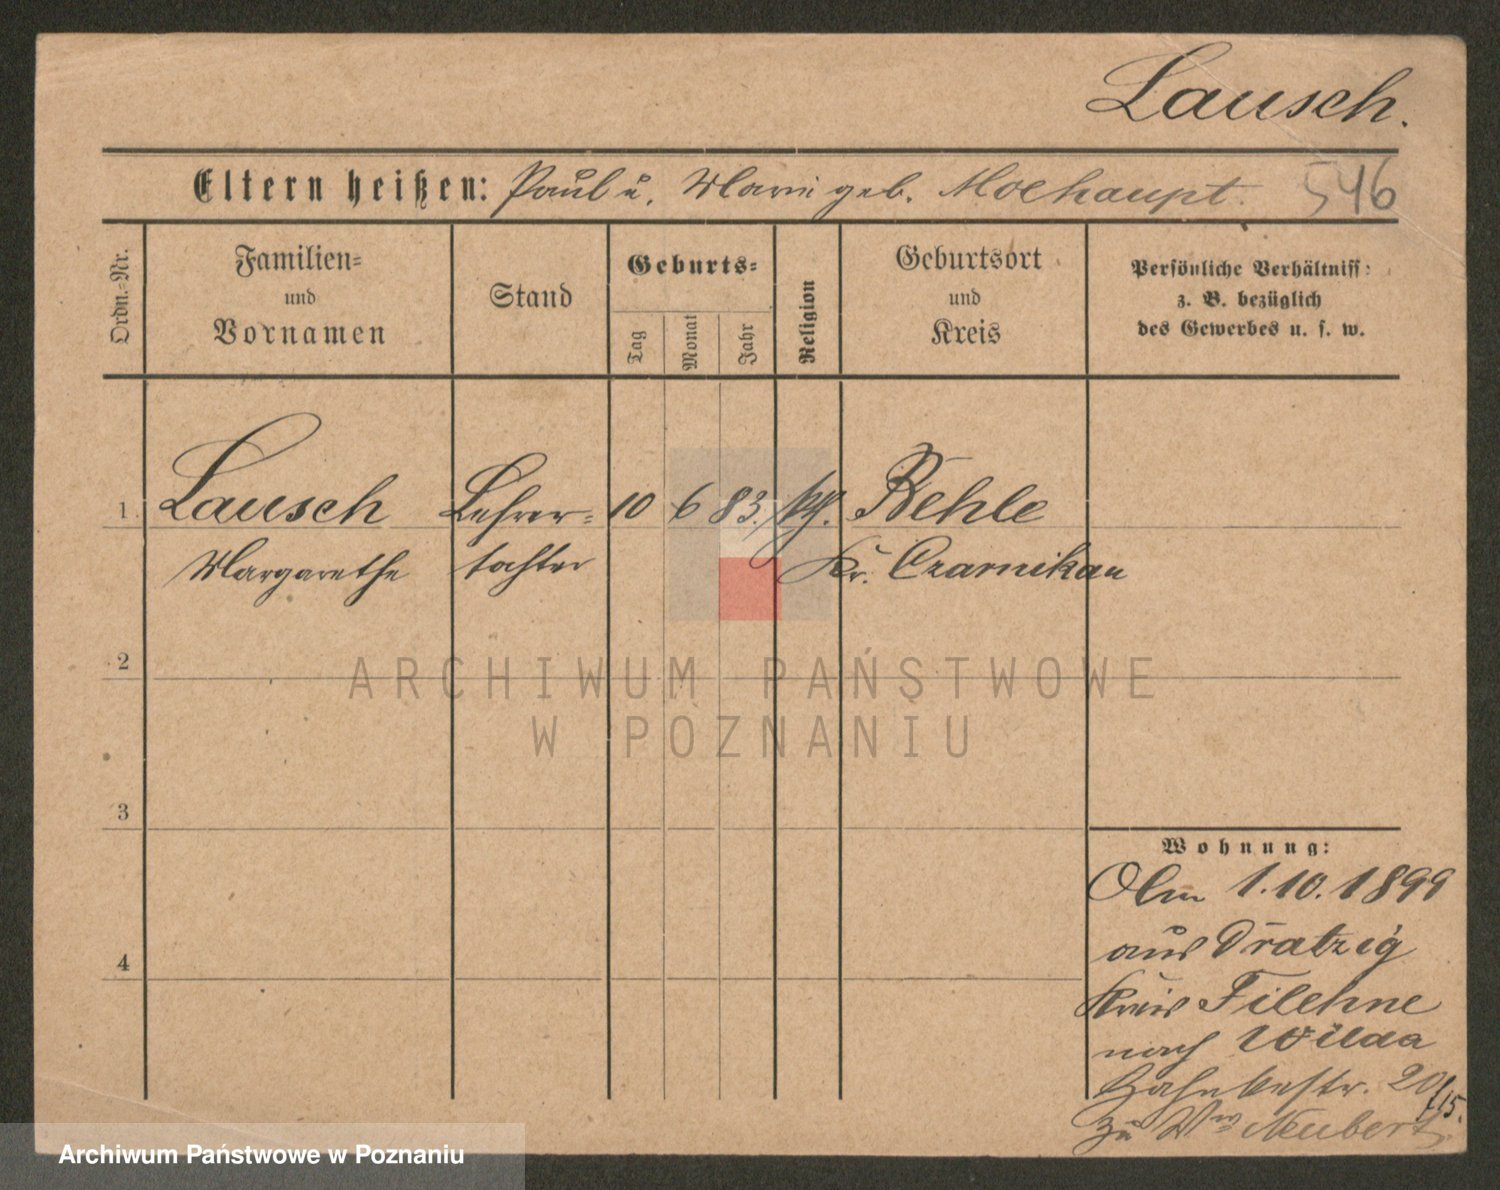 Lausch.
Eltern heißen: Paul u. Marie geb. Moehaupt. 546
Ordn.-Nr.
Familien-
und
Vornamen
Stand
Geburts-
Tag
Monat
Jahr
Religion
Geburtsort
und
Kreis
Persönliche Verhältniss:
z. B. bezüglich
des Gewerbes u. s. w.
1. Lausch Lehrer- 10 6 83. kth. Behle
Margarethe tochter Kr. Czarnikau
2
3
4
ARCHIWUM PAŃSTWOWE
W POZNANIU
Wohnung:
Am 1.10.1899
aus Dratzig
Kreis Filehne
nach Wilda
20/15.
zu Ww Neubert
Archiwum Państwowe w Poznaniu